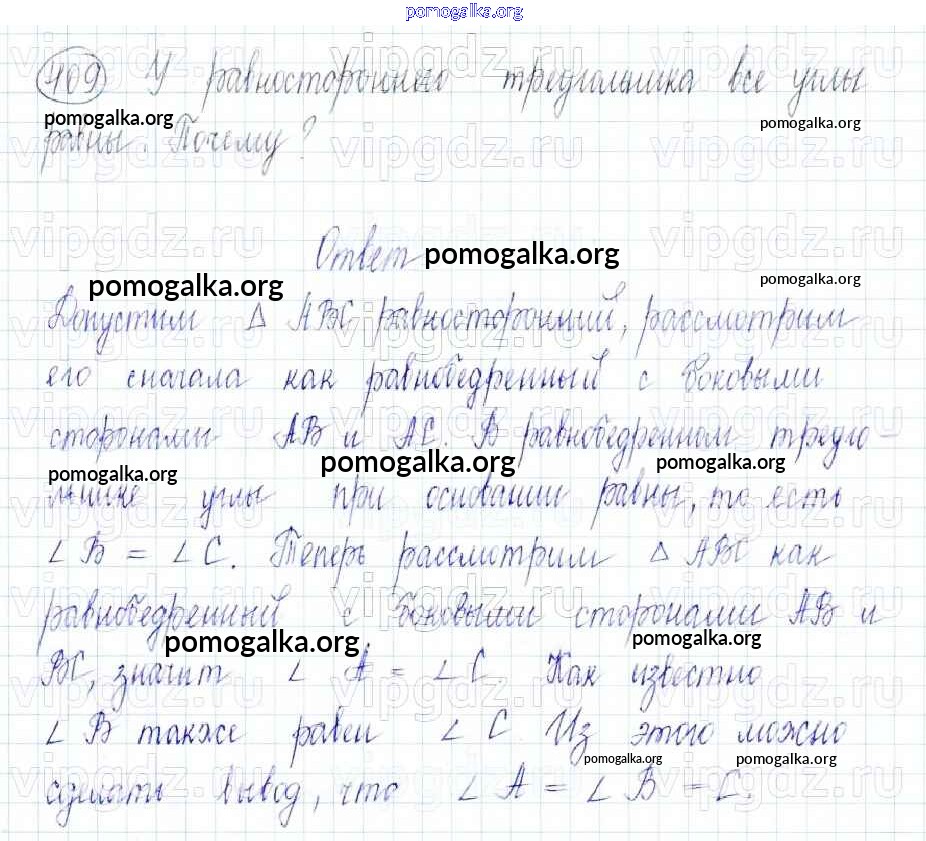 pomogalka.org
409 У равностороннего треугольника все углы
pomogalka.org pomogalka.org
равны. Почему?
Ответ pomogalka.org
pomogalka.org pomogalka.org
Допустим Δ ABC равносторонний, рассмотрим
его сначала как равнобедренный с боковыми
сторонами AB и AC. В равнобедренном треуго-
pomogalka.org pomogalka.org pomogalka.org
льнике углы при основании равны, то есть
∠ B = ∠ C. Теперь рассмотрим Δ ABC как
равнобедренный с боковыми сторонами AB и
pomogalka.org pomogalka.org
BC, значит ∠ A = ∠ C. Как известно
∠ B также равен ∠ C. Из этого можно
pomogalka.org pomogalka.org
сделать вывод, что ∠ A = ∠ B = C.